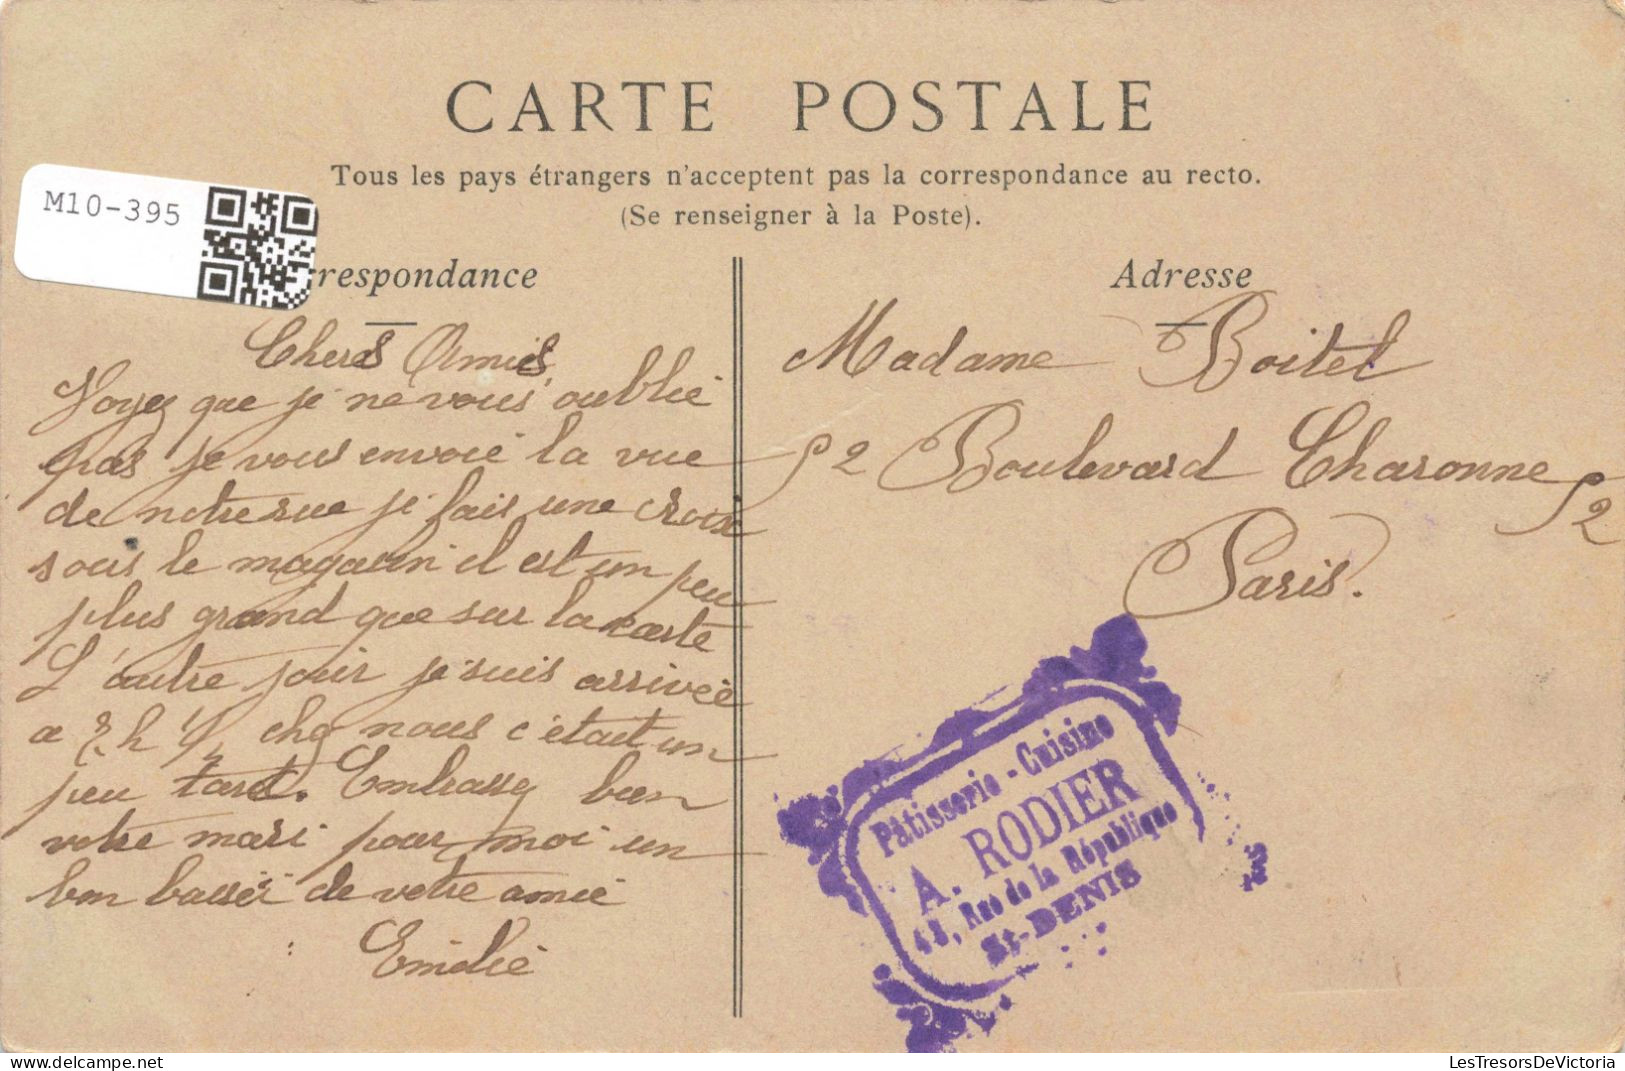 CARTE POSTALE
Tous les pays étrangers n'acceptent pas la correspondance au recto.
(Se renseigner à la Poste).
M10-395
rrespondance
Adresse
Cheres Amies
Voyez que je ne vous oublié
pas je vous envoie la vue
de notre rue je fais une croix
sous le magasin il est un peu
plus grand que sur la carte
L'autre jour je suis arrivée
a h 1/2 chez nous c'était un
peu tard. Embrassez bien
votre mari pour moi un
bon baiser de votre amie
Emilie
Madame Boitel
52 Boulevard Charonne 52
Paris.
Pâtisserie - Cuisine
A. RODIER
48, Rue de la République
St-DENIS
LesTresorsDeVictoria